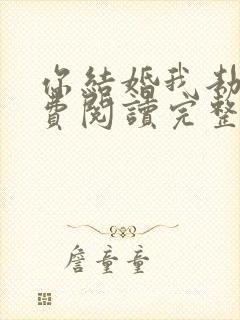 你結婚我劫
費閱讀完整
詹童童